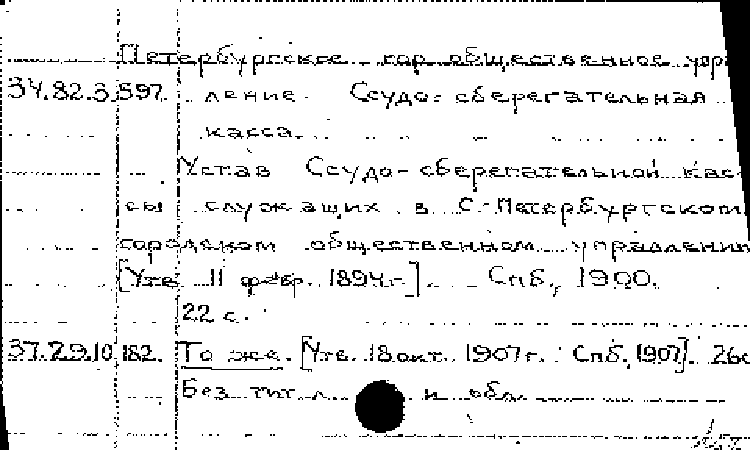 Петербургское гор. общественное упр
34.82.3.597. ление. Ссудо-сберегательная
касса.
Устав Ссудо-сберегательной кас-
сы служащих в С.-Петербургском
городском общественном управлении
[Утв. 11 февр. 1894 г.]. Спб., 1900.
22 с.
37.29.10.182. То же. [Утв. 18 окт. 1907 г. Спб., 1907]. 26с
Без тит. л. и обл.